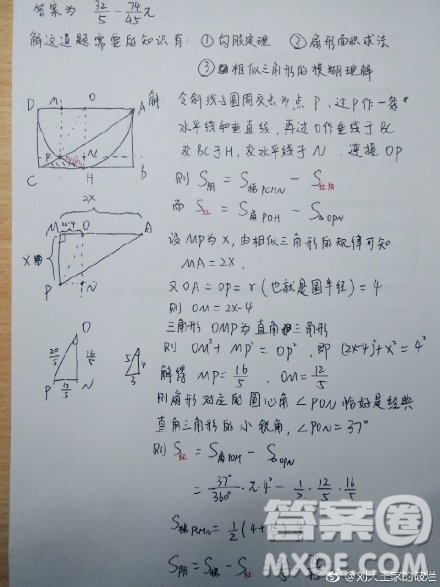 答案为 32/5 - 74/45 π
解这道题需要的知识有: ①勾股定理 ②扇形面积求法
③相似三角形的模糊理解
D M O A
P N
C H b
解: 令斜线与圆周交点为点P,过P作一条
水平线和垂直线,再过O作垂线于BC
交BC于H,交水平线于N,连接OP
则 S阴 = S梯PCHN - S红
而 S红 = S扇POH - S△OPN
2X
M 2X-4 O A
X
P N
设MP为X,由相似三角形的规律可知
MA = 2X,
又OA = OP = r (也就是圆半径) = 4
则 OM = 2X-4
三角形OMP为直角三角形
则 OM² + MP² = OP²,即 (2X-4)² + X² = 4²
O
20/5 16/5
P 12/5 N
5 4
3
解得 MP = 16/5, OM = 12/5
则扇形对应的圆心角∠PON恰好是经典
直角三角形的小锐角,∠PON = 37°
则 S红 = S扇POH - S△OPN
= 37°/360° · π · 4² - 1/2 · 12/5 · 16/5
S梯PCHN = 1/2 (4+
S阴 = S梯 - S红
答案圈
MXQE.COM
@刘大王家的战士